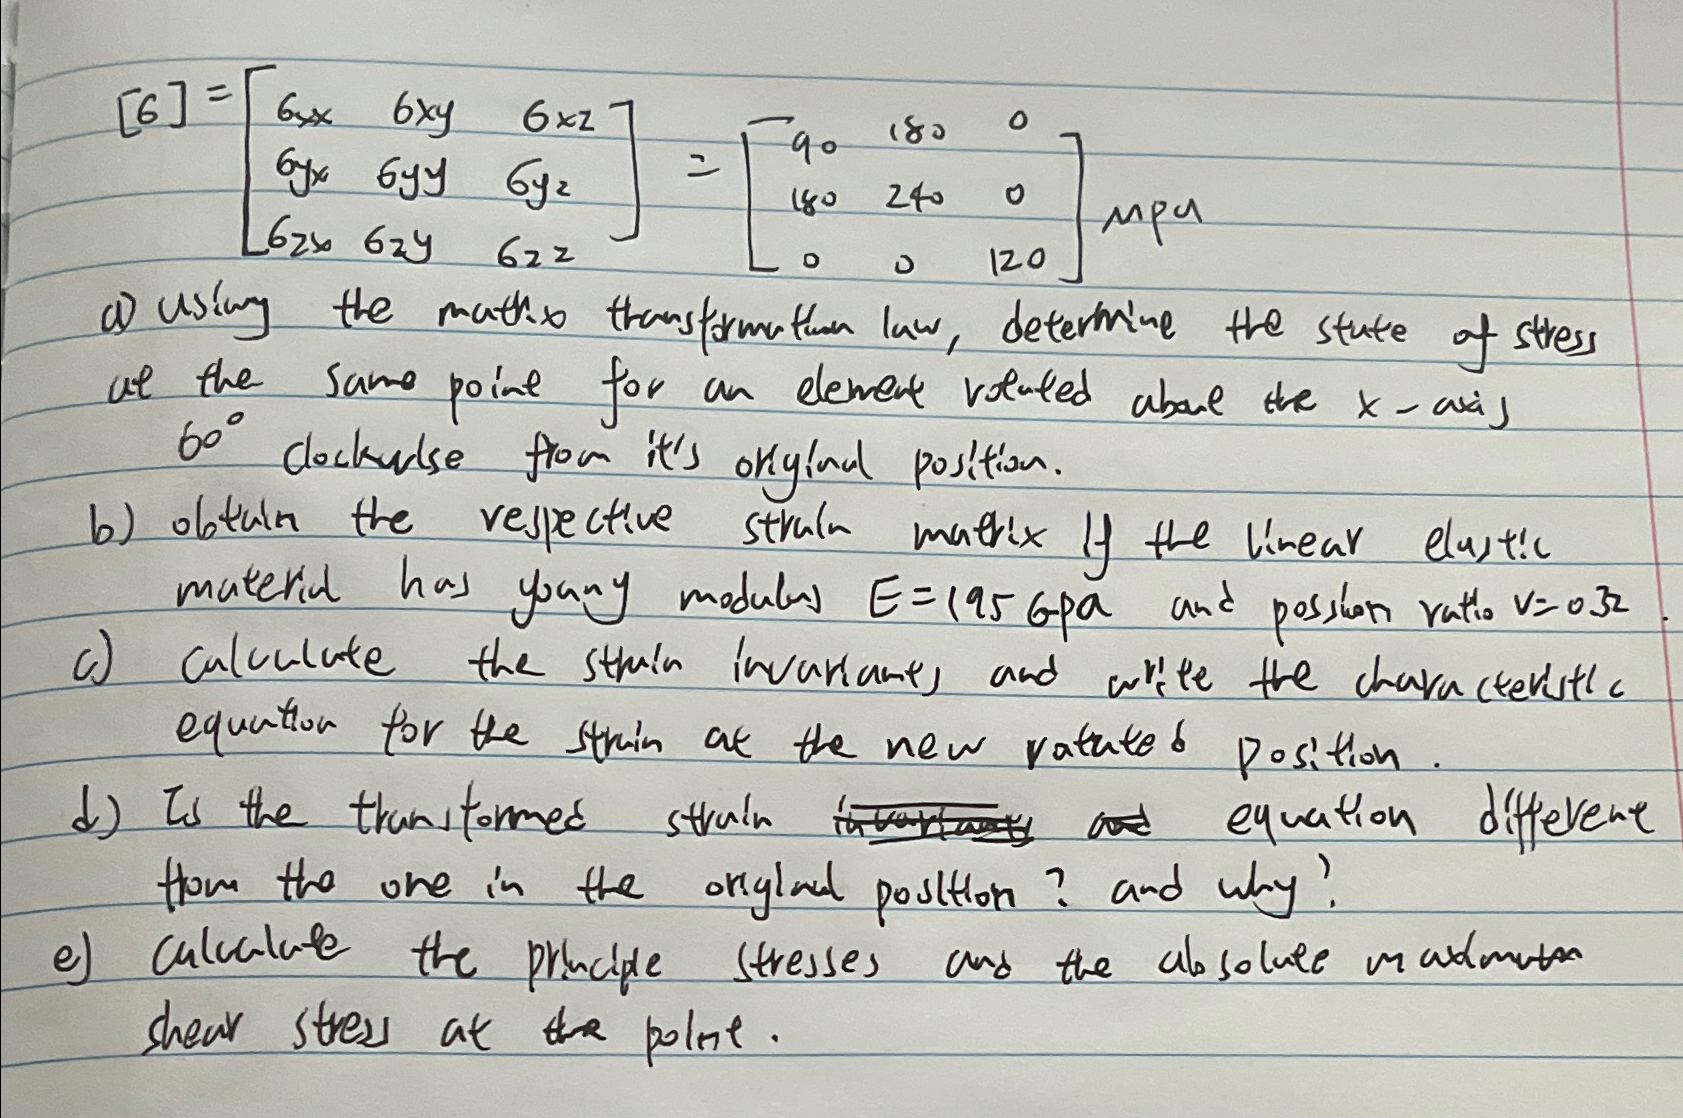 [6] = [ 6xx 6xy 6xz = [ 90 180 0
6yx 6yy 6yz 180 240 0 ] MPa
6zx 6zy 6zz ] 0 0 120
a) Using the matrix transformation law, determine the state of stress
at the same point for an element rotated about the x-axis
60° clockwise from it's original position.
b) obtain the respective strain matrix if the linear elastic
material has young modulus E=195 Gpa and possion ratio V=0.32.
c) calculate the strain invariants and write the characteristic
equation for the strain at the new rotated position.
d) Is the transformed strain equation different
from the one in the original position? and why?
e) calculate the principle stresses and the absolute maximum
shear stress at the point.